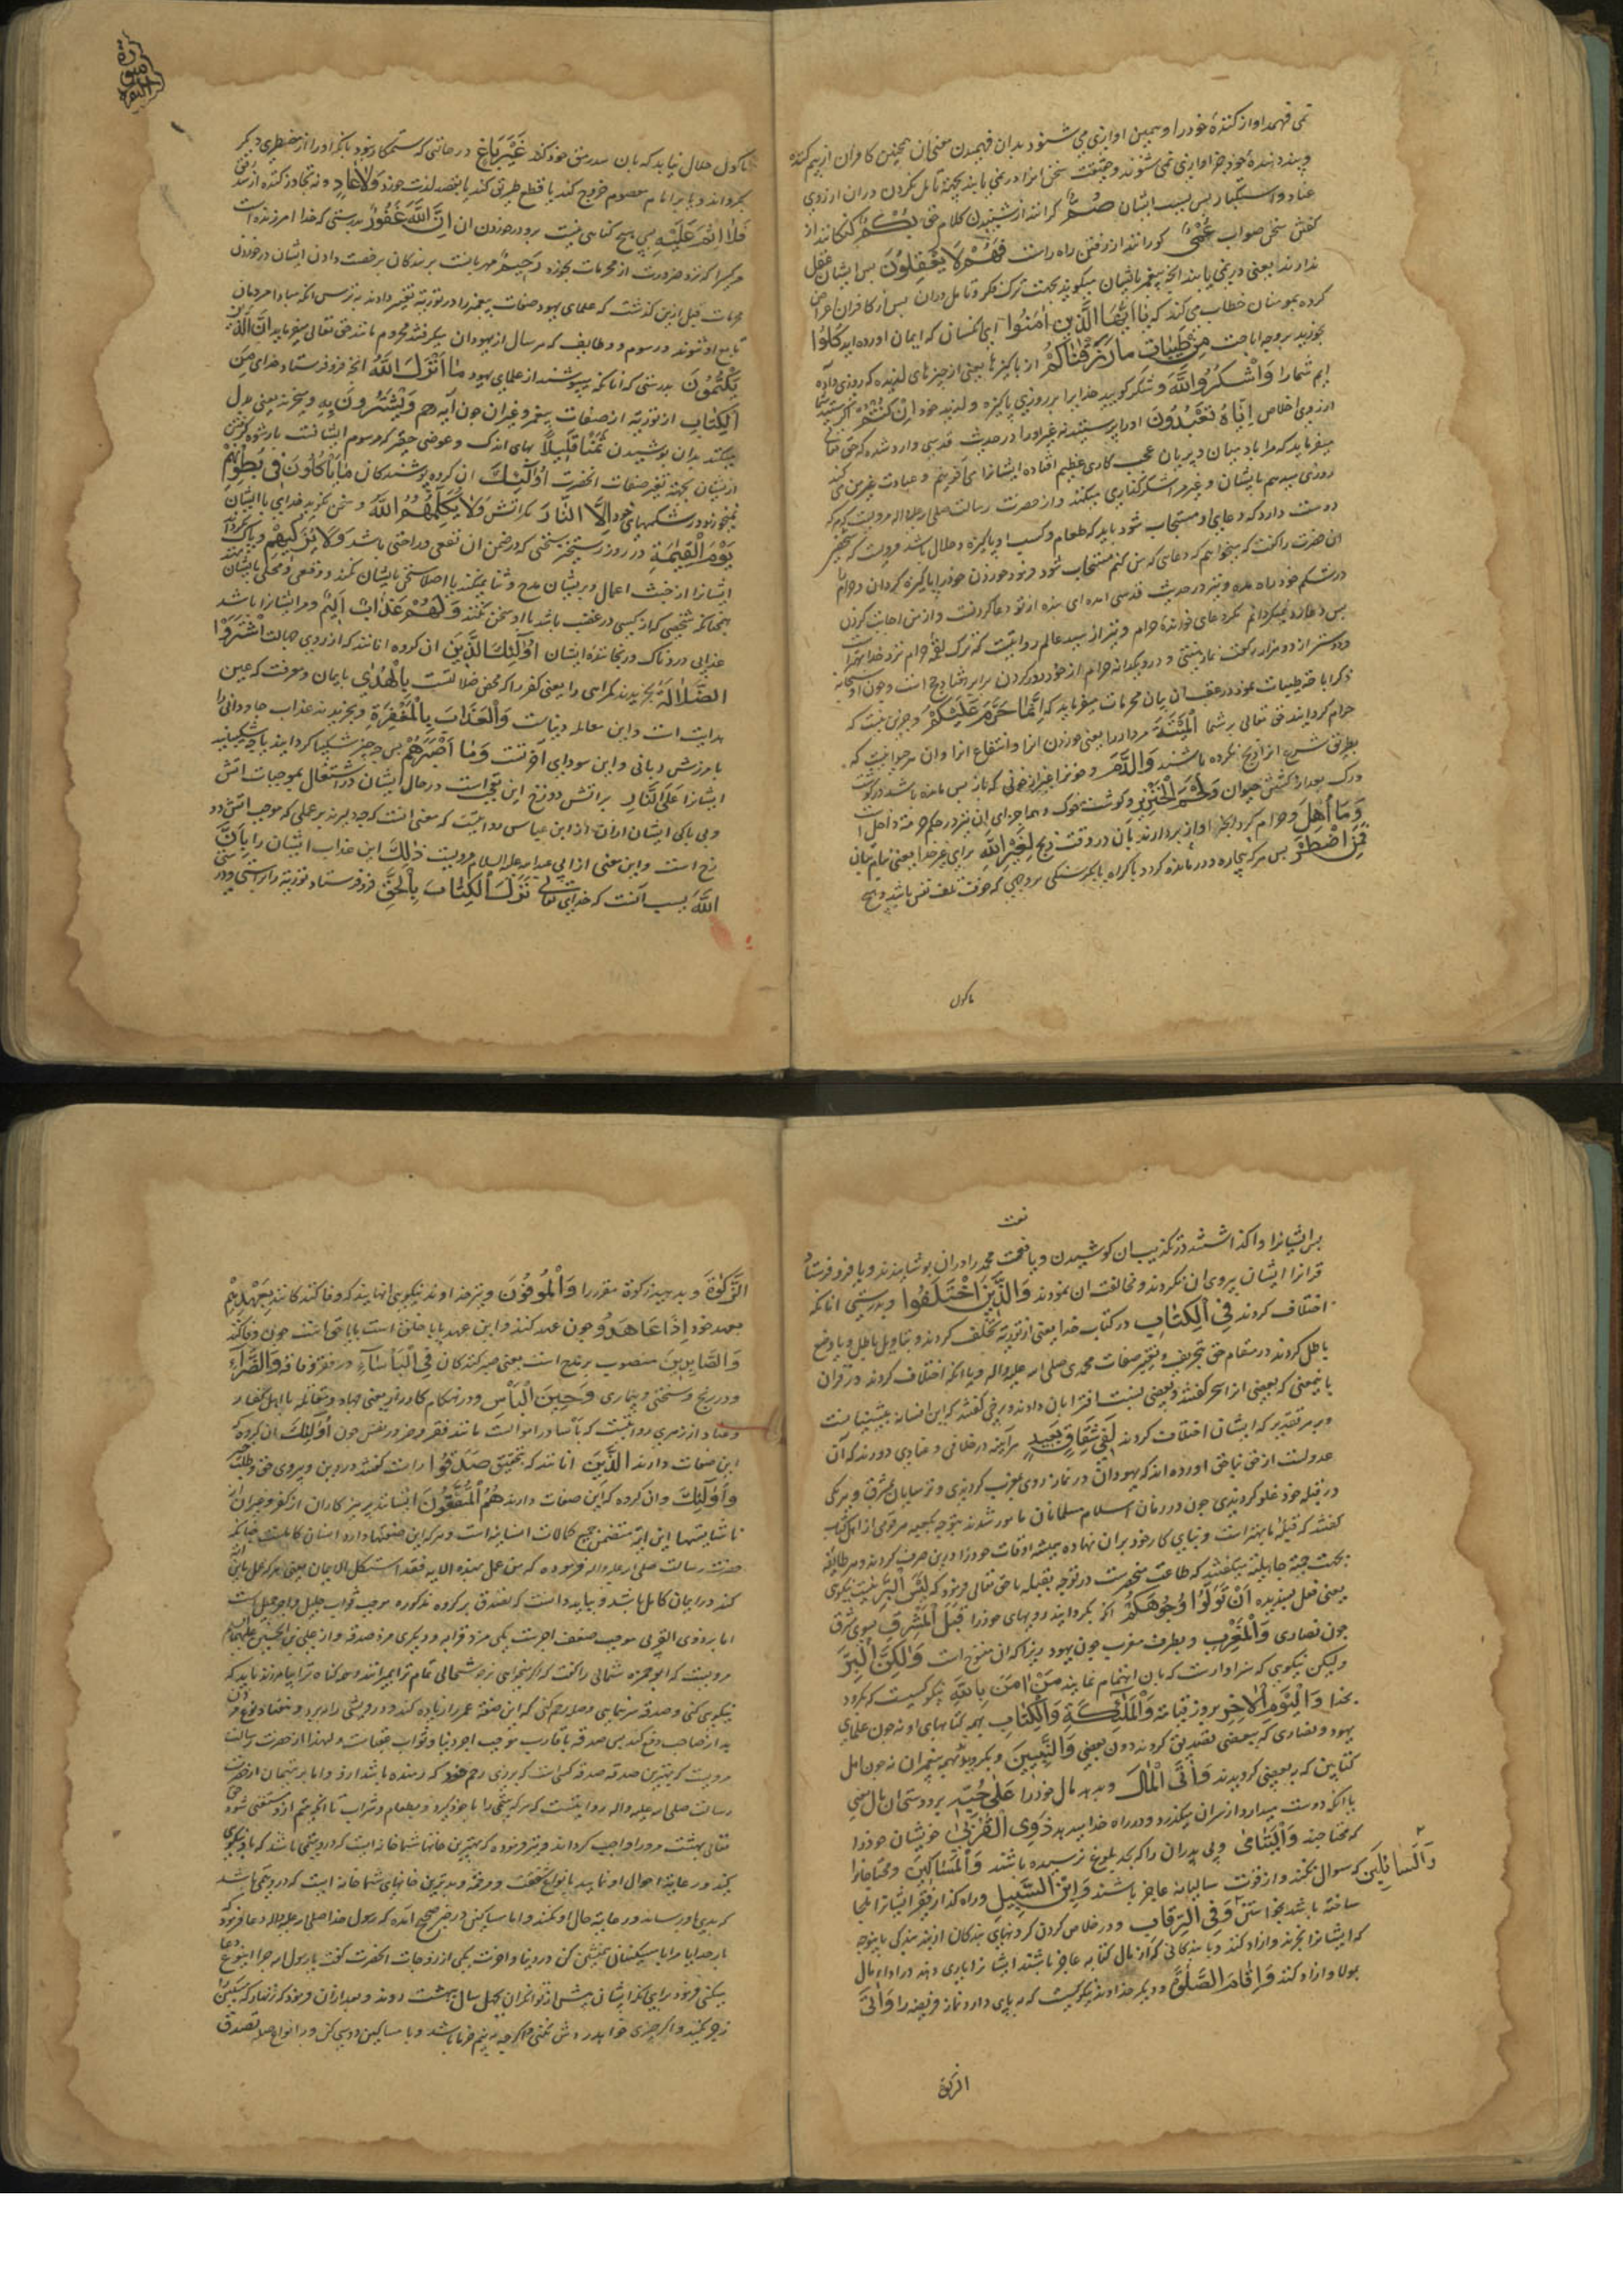 نمی فهمد اواز کنندهٔ خود را و همین اوازی می شنود بدان فهمیدن معنی ان همچنین کافران از بیم کننده
و پند دهندهٔ خود جز اوازی نمی شنوند و حقیقت سخن انرا در نمی یابند بجهة تامل نکردن در ان از روی
عناد و استکبار پس بسبب ایشان صُمٌّ کرانند از شنیدن کلام حق بُكْمٌ کنکانند از
کفتن سخن صواب عُمْيٌ کورانند از رفتن راه راست فَهُمْ لَا يَعْقِلُونَ پس ایشان عقل
ندارند یعنی در نمی یابند انچه پیغمبر بایشان میکوید بجهت ترک فکر و تامل در ان پس از کافران اعراض
کرده بمومنان خطاب می کند که يَا أَيُّهَا الَّذِينَ آمَنُوا ای انکسان که ایمان اورده اید كُلُوا
بخورید بر وجه اباحت مِنْ طَيِّبَاتِ مَا رَزَقْنَاكُمْ از پاکیزها یعنی از چیزهای لذیذه که روزی داده
ایم شمارا وَاشْكُرُوا لِلَّهِ و شکر کویید خدایرا بر روزی پاکیزه و لذیذ خود اِنْ كُنْتُمْ اکر هستید شما
از روی اخلاص اِيَّاهُ تَعْبُدُونَ او را پرستید نه غیر او را در حدیث قدسی وارد شده که حق تعالی
میفرماید که مرا با دمیان و پریان عجب کاری عظیم افتاده ایشانرا می آفرینم و عبادت غیر من می کنند
روزی میدهم بایشان و غیر مرا شکر کذاری میکنند و از حضرت رسالت صلی الله علیه و اله مرویست که هر که
دوست دارد که دعای او مستجاب شود باید که طعام و کسب او پاکیزه و حلال باشد مرویست که شخصی
ان حضرت را کفت که میخواهم که دعایی که من کنم مستجاب شود فرمود خوردن خود را پاکیزه کردان و حرام را
در شکم خود راه مده و نیز در حدیث قدسی امده ای بنده از تو دعا کردنست و از من اجابت کردن
پس دعا رد نمیکردانم مکر دعای خورندهٔ حرام و نیز از سید عالم روایتست که ترک لقمهٔ حرام نزد خدا بهتر است
و دوستر از دو هزار رکعت نماز سنتی و در ویکدانه حرام از خود دور کردن برابر هفتاد حج است و چون او سبحانه
ذکر اباحه طیبات نمود در عقب آن بیان محرمات میفرماید که اِنَّمَا حَرَّمَ عَلَيْكُمُ جز این نیست که
حرام کردانید حق تعالی بر شما الْمَيْتَةَ مردار را یعنی خوردن انرا و انتفاع انرا و ان هر حیوانیست که
بطریق شرع انرا ذبح نکرده باشند وَالدَّمَ و خونرا غیر از خونی که تابع پس مانده باشد در کوشت
و رک بعد از کشتن حیوان وَلَحْمَ الْخِنْزِيرِ و کوشت خوک و همه اجزای ان نیز در حکم حرمت داخل است
وَمَا أُهِلَّ و حرام کرد انچه اواز بردارند بان در وقت ذبح لِغَيْرِ اللَّهِ برای غیر خدا یعنی بنام بتان
فَمَنِ اضْطُرَّ پس هر که بیچاره و درمانده کردد باکراه یا بکرسنکی بر وجهی که خوف تلف نفس باشد و هیچ
ماکول
سورة
البقره
ماکول حلال نیابد که بان سد رمق خود کند غَيْرَ بَاغٍ در حالتی که ستمکار نبود بانکه او را از مضطری دیکر
بکرداند و یا بر امام معصوم خروج کند یا قطع طریق کند یا بقصد لذت خورد وَلَا عَادٍ و نه تجاوز کننده از سد رمق
فَلَا اِثْمَ عَلَيْهِ پس هیچ کناهی نیست برو در خوردن ان اِنَّ اللَّهَ غَفُورٌ بدرستی که خدا امرزنده است
هر کسرا که نزد ضرورت از محرمات بخورد رَحِيمٌ مهربانست بر بندکان برخصت دادن ایشان در خوردن
محرمات قبل ازین کذشت که علمای یهود صفات پیغمبر را در توریة تغییر دادند بترس انکه مبادا مردمان
تابع او شوند و رسوم و وظایف که هر سال از یهودان میکرفتند محروم مانند حق تعالی میفرماید اِنَّ الَّذِينَ
يَكْتُمُونَ بدرستی که انانکه میپوشند از علمای یهود مَا أَنْزَلَ اللَّهُ انچه فرو فرستاد خدای مِنَ
الْكِتَابِ از توریة از صفات پیغمبر و غیر ان چون آیه رجم وَيَشْتَرُونَ بِهِ و میخرند یعنی بدل
میکنند بدان پوشیدن ثَمَنًا قَلِيلًا بهای اندک و عوضی حقیر که مرسوم ایشانست با رشوه کرفتن
از ایشان بجهة تغیر صفات انحضرت أُولَئِكَ ان کروه پوشندکان مَا يَأْكُلُونَ فِي بُطُونِهِمْ
نمیخورند در شکمهای خود اِلَّا النَّارَ مکر اتش وَلَا يُكَلِّمُهُمُ اللَّهُ و سخن نکوید خدای با ایشان
يَوْمَ الْقِيَمَةِ در روز رستخیز سخنی که در ضمن ان نفعی و راحتی باشد وَلَا يُزَكِّيهِمْ و پاک نکرداند
ایشانرا از خبث اعمال و بر ایشان مدح و ثنا نمیکند یا اصلا سخن بایشان نکند
همچنانکه شخصی که از کسی در غضب باشد با او سخن نکند وَلَهُمْ عَذَابٌ اَلِيمٌ و مر ایشانرا باشد
عذابی دردناک و رنجاننده ایشان أُولَئِكَ الَّذِينَ ان کروه انانند که از روی جهالت اشْتَرَوُا
الضَّلَالَةَ بخریدند کمراهی را یعنی کفر را که محض ضلالتست بِالْهُدَى بایمان و معرفت که عین
هدایت است و این معامله دنیاست وَالْعَذَابَ بِالْمَغْفِرَةِ و بخریدند عذاب جاودانی را
بامرزش ربانی و این سودای آخرتست وَمَا أَصْبَرَهُمْ پس چه چیز شکیبا کردانید
ایشانرا عَلَى النَّارِ بر اتش دوزخ این تعجب است در حال ایشان در اشتغال بموجبات اتش
و بی باکی ایشان ازان از ابن عباس روایتست که معنی انست که چه دلیرند بر عملی که موجب اتش دو
زخ است و این معنی از ابی عبدالله علیه السلام مرویست ذَلِكَ این عذاب ایشان را بِأَنَّ
اللَّهَ بسبب آنست که خدای تعالی نَزَّلَ الْكِتَابَ بِالْحَقِّ فرو فرستاد توریة را براستی و در
نعت
پس ایشانرا واکذاشتند در تکذیب ان کوشیدن و یا نعت محمد را در ان پوشانیدند و یا فرو فرستاد
قرانرا ایشان پیروی ان نکردند و مخالفت ان نمودند وَالَّذِينَ اخْتَلَفُوا و بدرستی انانکه
اختلاف کردند فِي الْكِتَابِ در کتاب خدا یعنی از توریة تخلف کردند و بتاویل باطل و یا وضع
باطل کردند در مقام حق بتحریف و تغییر صفات محمدی صلی الله علیه و اله و یا انکه اختلاف کردند در قران
باینمعنی که بعضی انرا سحر کفتند و بعضی نسبت افترا بان دادند و برخی کفتند که این افسانه پیشینیانست
و بر هر تقدیر که ایشان اختلاف کردند لَفِي شِقَاقٍ بَعِيدٍ هراینه در خلافی و عنادی دورند که آن
عدولست از حق بناحق اورده اند که یهودان در نماز روی بمغرب کردندی و ترسایان بمشرق و هر یکی
در قبله خود غلو کردندی چون در زمان اسلام مسلمانان مامور شدند بتوجه بکعبه هر قومی از اهل کتاب
کفتند که قبلهٔ ما بهتر است و بنای کار خود بران نهاده بیشتر اوقات خود را درین صرف کردند و هر طایفه
بجهت حمیة جاهلیة میکفتند که طاعت منحصرست در توجه بقبله ما حق تعالی فرمود که لَيْسَ الْبِرَّ نیست نیکوی
یعنی فعل پسندیده أَنْ تُوَلُّوا وُجُوهَكُمْ انکه بکردانید رویهای خود را قِبَلَ الْمَشْرِقِ بسوی مشرق
چون نصاری وَالْمَغْرِبِ و بطرف مغرب چون یهود زیرا که ان منسوخ است وَلَكِنَّ الْبِرَّ
ولیکن نیکویی که سزاوار است که بان اهتمام نمایند مَنْ اٰمَنَ بِاللَّهِ نیکو کسیست که بکرود
بخدا وَالْيَوْمِ الْاٰخِرِ بروز قیامت وَالْمَلَئِكَةِ وَالْكِتَابِ همه کتابهای او نه چون علمای
یهود و نصاری که ببعضی تصدیق کردند دون بعضی وَالنَّبِيِّينَ و بکرود بهمه پیغمبران نه چون اهل
کتابین که به بعضی کرویدند وَأٰتَى الْمَالَ و بدهد مال خود را عَلَى حُبِّهِ بر دوستی ان مال یعنی
با انکه دوست میدارد از سر ان میکذرد و در راه خدا میدهد ذَوِي الْقُرْبَى خویشان خود را
که محتاجند وَالْيَتَامَى و بی پدران را که بحد بلوغ نرسیده باشند وَالْمَسَاكِينَ و محتاجانرا
وَالسَّائِلِينَ
که سوال نکنند و از قوت سالیانه عاجز باشند وَابْنَ السَّبِيلِ و راه کذار فقیر
ساخته باشد بخواستن وَفِي الرِّقَابِ و در خلاص کردن کردنهای بندکان از بند بندکی باینوجه
که ایشانرا بخرند و ازاد کنند و یا بندکانی که از مال کتابه عاجز باشند ایشانرا یاری دهند در اداء مال
مولا و ازاد کنند وَأَقَامَ الصَّلَوةَ و دیکر خداوند نیکوییست که به پای دارد نماز فریضه را وَأٰتَى
الزکوة
الزَّكَوةَ و بدهد زکوة مقدره را وَالْمُوفُونَ و نیز خداوند نیکویی انهایند که وفا کننده کانند بِعَهْدِهِمْ
بعهد خود اِذَا عَاهَدُوا چون عهد کنند و این عهد یا با خلق است یا با حق است چون وفا کنند
وَالصَّابِرِينَ منصوب بر مدح است یعنی صبر کنندکان فِي الْبَأْسَاءِ در فقر و فاقه وَالضَّرَّاءِ
و در رنج و سختی و بیماری وَحِينَ الْبَأْسِ و در هنکام کارزار یعنی جهاد و مقاتله با اهل کفار
و عناد از زهری روایتست که باسا در اموالست مانند فقر و ضر در نفس چون أُولَئِكَ ان کروه که
این صفات دارند الَّذِينَ انانند که بتحقیق صَدَقُوا راست کفتند در دین و پیروی حق
وَأُولَئِكَ وان کروه که این صفات دارند هُمُ الْمُتَّقُونَ ایشانند پرهیزکاران از کفر و جز ان از
ناشایستها این ایه متضمن جمیع کمالات انسانیه است و هر که این صفتها دارد انسان کاملست چنانکه
حضرت رسالت صلی الله علیه و اله فرموده که من عمل بهذه الایه فقد استکمل الایمان یعنی هر که عمل باین ایه
کند در ایمان کامل باشد و بباید دانست که تصدق بر کروه مذکوره موجب ثواب جلیل و اجر جمیل است
اما بر ذوی القربی موجب ضعف اجرست یکی مزد قرابه و دیکری مزد صدقه و از علی بن الحسین علیهما السلام
مرویست که ابو حمزه ثمالی را کفت که اکر میخواهی
نیکویی کنی و صدقه سر نمایی و صله رحم کنی که این صفت عمر را زیاده کند و درویشی را ببرد و هفتاد نوع مر
بد از صاحب دفع کند پس صدقه باقارب موجب اجر دنیا و ثواب عقباست و لهذا از حضرت رسالت
مرویست که بهترین صدقه صدقه کسی است که بر ذی رحم خود که رمنده باشد ازو و اما بر یتیمان از حضرت
رسالت صلی الله علیه و اله روایتست که هر که یتیمی را با خود کیرد و بطعام و شراب تا انکه یتیم ازو مستغنی شود حق
تعالی بهشت مر او را واجب کرداند و نیز فرموده که بهترین خانها شما خانه ایست که درو یتیمی باشد که با او نیکویی
کنند و رعایت احوال او نمایند بانواع شفقت و مرحمة و بدترین خانهای شما خانه ایست که درو یتیمی باشد
که بدی باو رسانند و رعایت حال او نکنند و اما مساکین در خبر صحیح آمده که رسول خدا صلی الله علیه و اله دعا فرمود که
بار خدایا مرا با مسکینان همنشین کن در دنیا و اخرت یکی از زوجات انحضرت کفت یا رسول الله چرا اینوع دعا
میکنی فرمود برای انکه ایشان پیش از توانکران بچهل سال ببهشت روند و بعد ازان فرمود که زنهار که مسکین را
زجر نکنید و اکر چیزی خواهد ردش نکنی و اکر چه به نیم خرما باشد و با مساکین دوستی کن و بانواع صله تصدق